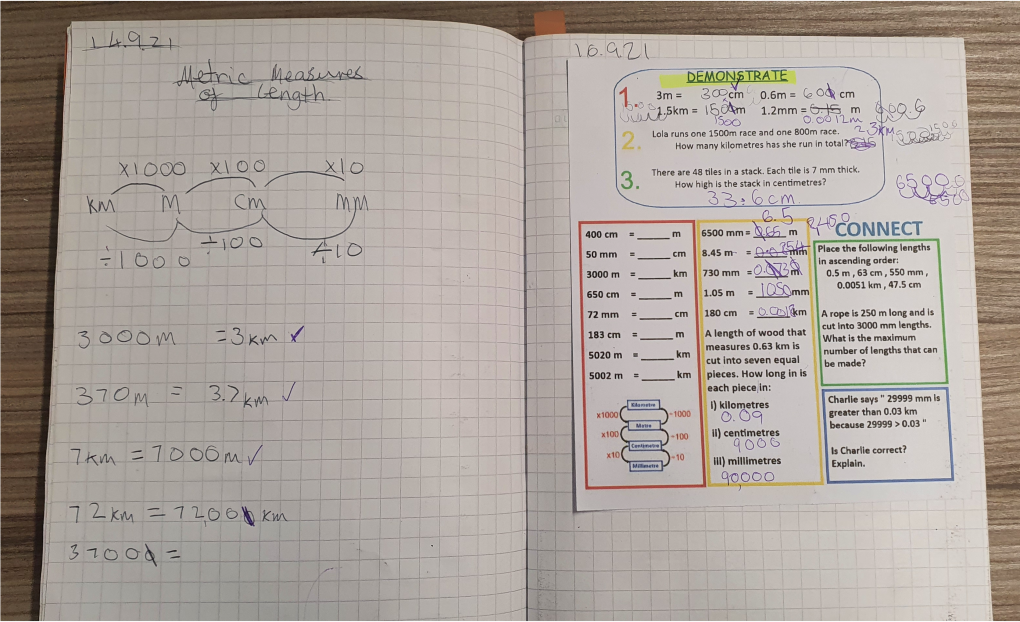 14.9.21
Metric Measures
of Length
x1000 x100 x10
Km M Cm MM
÷1000 ÷100 ÷10
3000m = 3km ✓
370m = 3.7km ✓
7km = 7000m ✓
72km = 72,000 km
3700 =
16.9.21
DEMONSTRATE
1. 3m = 300cm 0.6m = 60 cm
1.5km = 150 m 1.2mm = m
1500 0.0012m
600.6
2. Lola runs one 1500m race and one 800m race. 2.3km
How many kilometres has she run in total?
6500.0
3. There are 48 tiles in a stack. Each tile is 7 mm thick.
How high is the stack in centimetres?
33.6cm
400 cm = ______ m
50 mm = ______ cm
3000 m = ______ km
650 cm = ______ m
72 mm = ______ cm
183 cm = ______ m
5020 m = ______ km
5002 m = ______ km
Kilometre
x1000 ÷1000
Metre
x100 ÷100
Centimetre
x10 ÷10
Millimetre
6.5
6500 mm = 0.65 m
8450
8.45 m = mm
730 mm = 0.073 m
1.05 m = 1050 mm
180 cm = 0.0018 km
A length of wood that
measures 0.63 km is
cut into seven equal
pieces. How long in is
each piece in:
i) kilometres
0.09
ii) centimetres
9000
iii) millimetres
90,000
CONNECT
Place the following lengths
in ascending order:
0.5 m , 63 cm , 550 mm ,
0.0051 km , 47.5 cm
A rope is 250 m long and is
cut into 3000 mm lengths.
What is the maximum
number of lengths that can
be made?
Charlie says " 29999 mm is
greater than 0.03 km
because 29999 > 0.03 "
Is Charlie correct?
Explain.